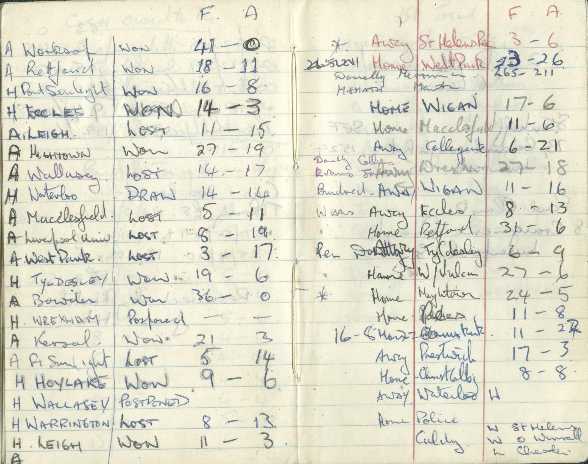 F. A
A Worksop Won 41 - 0
A Retford Won 18 - 11
H Pt Sunlight Won 16 - 8
H ECCLES WON 14 - 3
A LEIGH. LOST 11 - 15
A HIGHTOWN Won 27 - 19
A Wallasey LOST 14 - 17
H Waterloo DRAW 14 - 14
A Macclesfield. LOST 5 - 11
A Liverpool Univ LOST 8 - 19
A West Park. LOST 3 - 17.
H TYLDESLEY Won 19 - 6
A Bowdon Won 36 - 0
H. WREXHAM Postponed - -
A Kersal. Won 21 3
A Pt Sunlight LOST 5 14
H HOYLAKE WON 9 - 6
H WALLASEY POSTPONED
H WARRINGTON LOST 8 - 13
H. LEIGH WON 11 - 3
A
F A
* Away St Helens 3 - 6
Home West Park 23 - 26
265 - 211
HOME WIGAN 17 - 6
Home Macclesfield 11 - 6
Away Collegiate 6 - 21
27 - 18
Away WIGAN 11 - 16
Away Eccles 8 - 13
Home Retford 31 6
Tyldesley 6 - 9
Home W/Vulcan 27 - 6
* Home Hightown 24 - 5
Home 11 - 8
16 - 8 11 - 22
Away Prestwich 17 - 3
Home 8 - 8
AWAY Waterloo W
Home Police
Caldy W St Helens
W O Wirral
L Chester